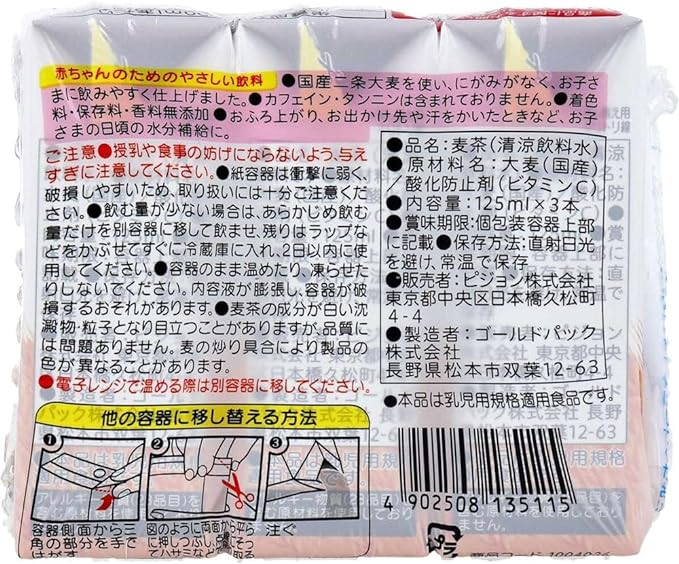 赤ちゃんのためのやさしい飲料 ●国産二条大麦を使い、にがみがなく、お子さ
まに飲みやすく仕上げました。●カフェイン・タンニンは含まれておりません。●着色
料・保存料・香料無添加 ●おふろ上がり、お出かけ先や汗をかいたときなど、お子
さまの日頃の水分補給に。
ご注意 ●授乳や食事の妨げにならないよう、与え
すぎに注意してください。●紙容器は衝撃に弱く、
破損しやすいため、取り扱いには十分ご注意くださ
い。●飲む量が少ない場合は、あらかじめ飲む
量だけを別容器に移して飲ませ、残りはラップな
どをかぶせてすぐに冷蔵庫に入れ、2日以内に使
用してください。●容器のまま温めたり、凍らせた
りしないでください。内容液が膨張し、容器が破
損するおそれがあります。●麦茶の成分が白い沈
澱物・粒子となり目立つことがありますが、品質に
は問題ありません。麦の炒り具合により製品の
色が異なることがあります。
●電子レンジで温める際は別容器に移してください。
他の容器に移し替える方法
1
2
3
容器側面から三
角の部分を手で
はがす
図のように両面から平らに
押しつぶし、点線にそっ
てハサミなどで切り取る
注ぐ
●品名:麦茶(清涼飲料水)
●原材料名:大麦(国産)
/酸化防止剤(ビタミンC)
●内容量:125ml×3本
●賞味期限:個包装容器上部
に記載 ●保存方法:直射日光
を避け、常温で保存
●販売者:ピジョン株式会社
東京都中央区日本橋久松町
4-4
●製造者:ゴールドパック
株式会社
長野県松本市双葉12-63
●本品は乳児用規格適用食品です。
4 902508 135115